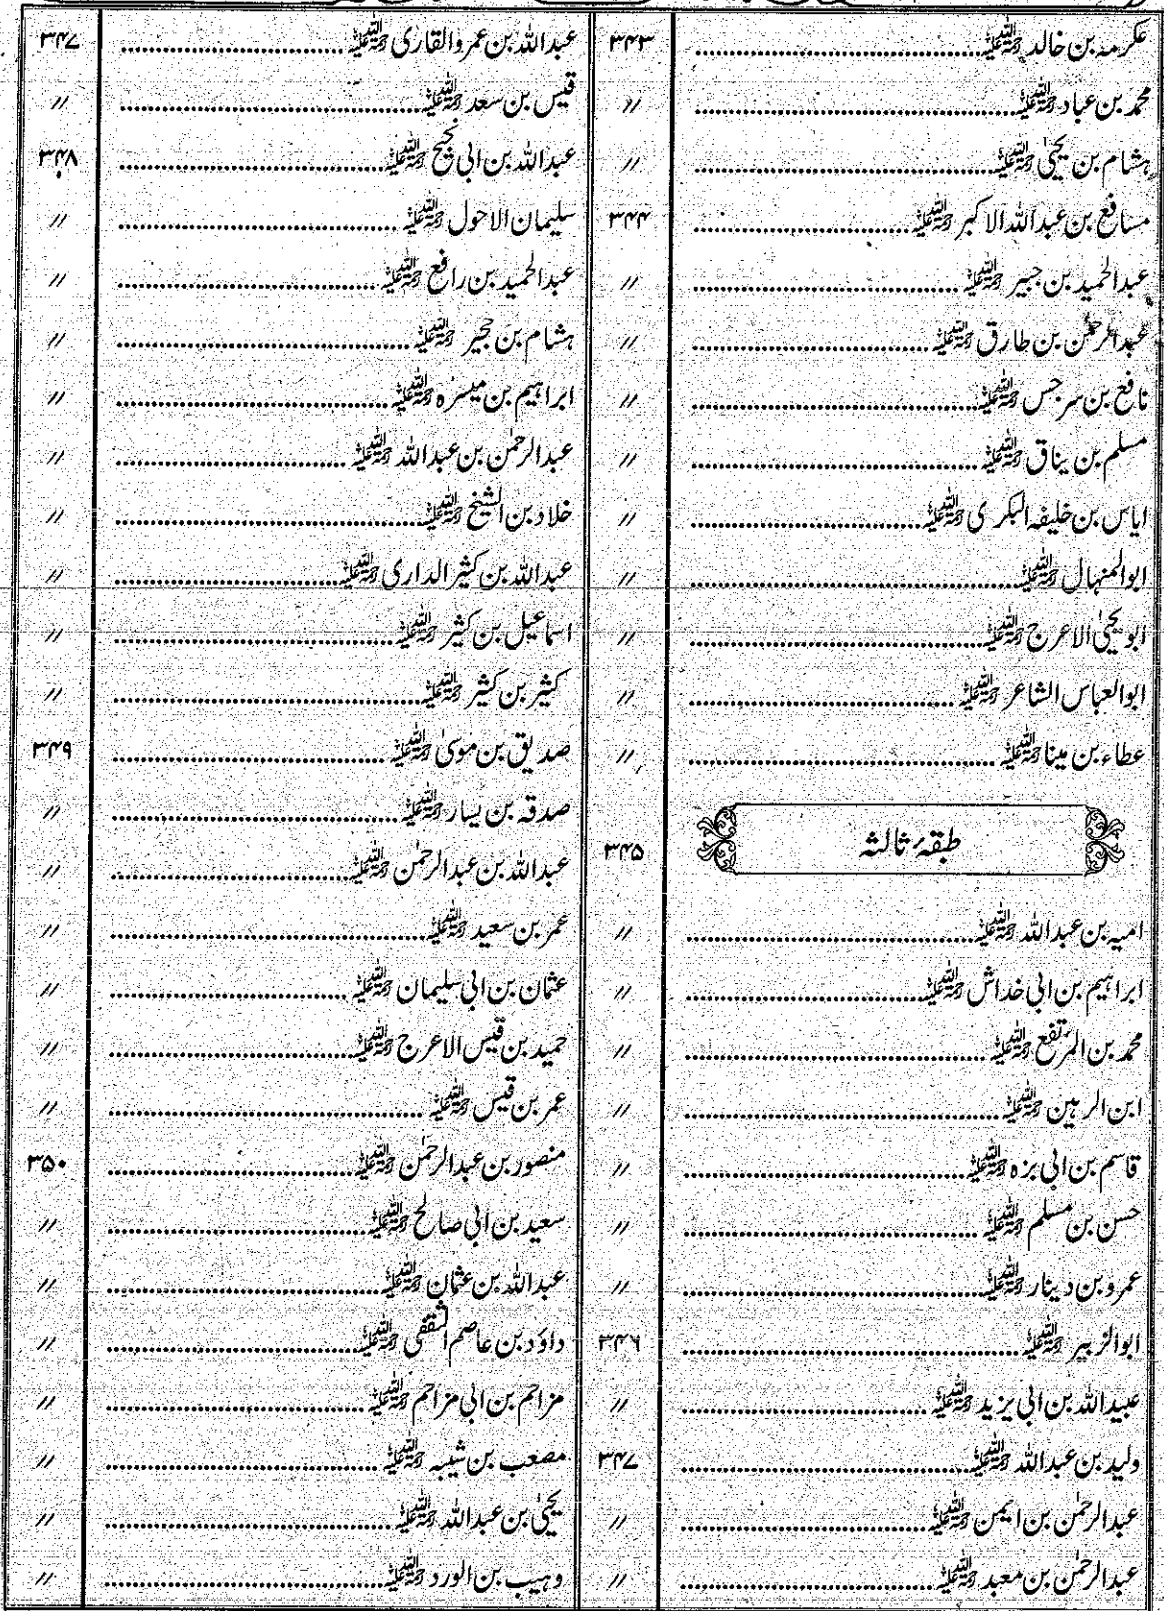 عکرمہ بن خالد رحمۃ اللہ علیہ ........ ۳۴۳
محمد بن عباد رحمۃ اللہ علیہ ........ //
ہشام بن یحییٰ رحمۃ اللہ علیہ ........ //
مسافع بن عبداللہ الاکبر رحمۃ اللہ علیہ ........ ۳۴۴
عبدالحمید بن جبیر رحمۃ اللہ علیہ ........ //
عبدالرحمٰن بن طارق رحمۃ اللہ علیہ ........ //
نافع بن سرجس رحمۃ اللہ علیہ ........ //
مسلم بن یناق رحمۃ اللہ علیہ ........ //
ایاس بن خلیفہ البکری رحمۃ اللہ علیہ ........ //
ابوالمنہال رحمۃ اللہ علیہ ........ //
ابو یحییٰ الاعرج رحمۃ اللہ علیہ ........ //
ابوالعباس الشاعر رحمۃ اللہ علیہ ........ //
عطاء بن مینا رحمۃ اللہ علیہ ........ //
طبقۂ ثالثہ ۳۴۵
امیہ بن عبداللہ رحمۃ اللہ علیہ ........ //
ابراہیم بن ابی خداش رحمۃ اللہ علیہ ........ //
محمد بن المرتفع رحمۃ اللہ علیہ ........ //
ابن الرہین رحمۃ اللہ علیہ ........ //
قاسم بن ابی بزہ رحمۃ اللہ علیہ ........ //
حسن بن مسلم رحمۃ اللہ علیہ ........ //
عمرو بن دینار رحمۃ اللہ علیہ ........ //
ابوالزبیر رحمۃ اللہ علیہ ........ ۳۴۶
عبیداللہ بن ابی یزید رحمۃ اللہ علیہ ........ //
ولید بن عبداللہ رحمۃ اللہ علیہ ........ ۳۴۷
عبدالرحمٰن بن ایمن رحمۃ اللہ علیہ ........ //
عبدالرحمٰن بن معبد رحمۃ اللہ علیہ ........ //
عبداللہ بن عمرو القاری رحمۃ اللہ علیہ ........ ۳۴۷
قیس بن سعد رحمۃ اللہ علیہ ........ //
عبداللہ بن ابی نجیح رحمۃ اللہ علیہ ........ ۳۴۸
سلیمان الاحول رحمۃ اللہ علیہ ........ //
عبدالحمید بن رافع رحمۃ اللہ علیہ ........ //
ہشام بن حجیر رحمۃ اللہ علیہ ........ //
ابراہیم بن میسرہ رحمۃ اللہ علیہ ........ //
عبدالرحمٰن بن عبداللہ رحمۃ اللہ علیہ ........ //
خلاد بن الشیخ رحمۃ اللہ علیہ ........ //
عبداللہ بن کثیر الداری رحمۃ اللہ علیہ ........ //
اسماعیل بن کثیر رحمۃ اللہ علیہ ........ //
کثیر بن کثیر رحمۃ اللہ علیہ ........ //
صدیق بن موسیٰ رحمۃ اللہ علیہ ........ ۳۴۹
صدقہ بن یسار رحمۃ اللہ علیہ ........ //
عبداللہ بن عبدالرحمٰن رحمۃ اللہ علیہ ........ //
عمر بن سعید رحمۃ اللہ علیہ ........ //
عثمان بن ابی سلیمان رحمۃ اللہ علیہ ........ //
حمید بن قیس الاعرج رحمۃ اللہ علیہ ........ //
عمر بن قیس رحمۃ اللہ علیہ ........ //
منصور بن عبدالرحمٰن رحمۃ اللہ علیہ ........ ۳۵۰
سعید بن ابی صالح رحمۃ اللہ علیہ ........ //
عبداللہ بن عثمان رحمۃ اللہ علیہ ........ //
داؤد بن عاصم الثقفی رحمۃ اللہ علیہ ........ //
مزاحم بن ابی مزاحم رحمۃ اللہ علیہ ........ //
مصعب بن شیبہ رحمۃ اللہ علیہ ........ //
یحییٰ بن عبداللہ رحمۃ اللہ علیہ ........ //
وہیب بن الورد رحمۃ اللہ علیہ ........ //